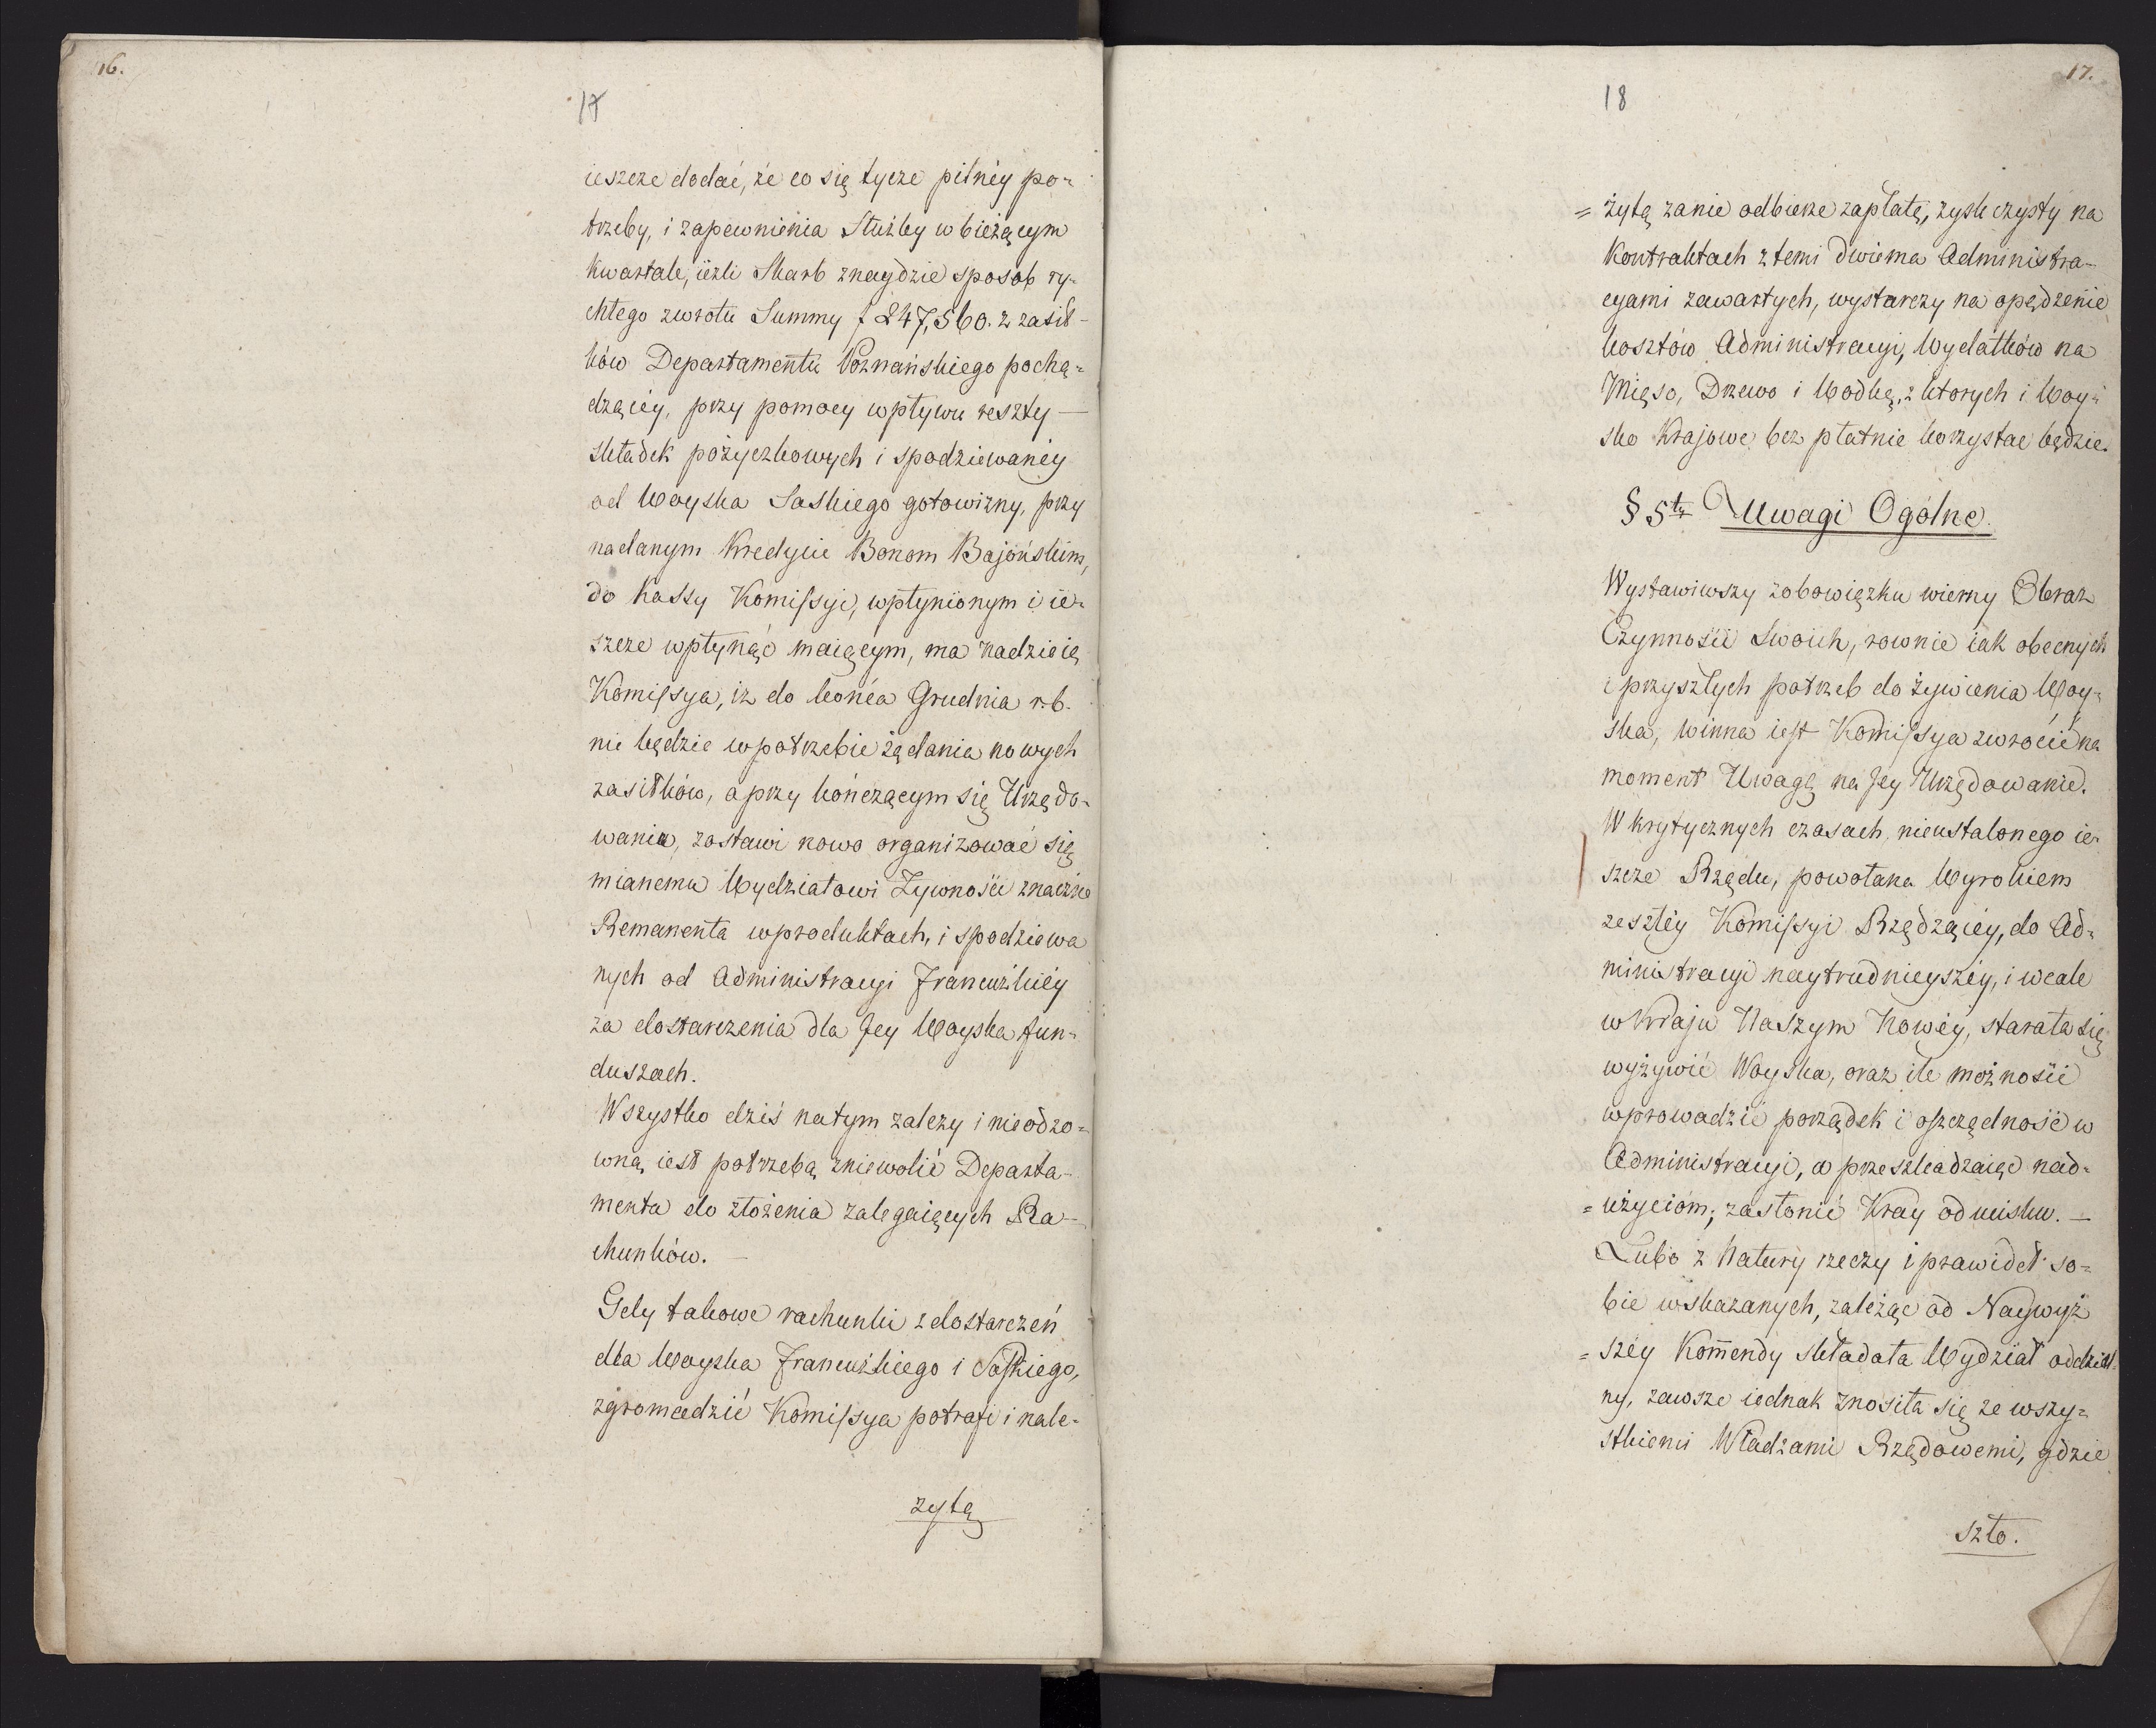 16.
17
ieszcze dodać, że co się tycze pilnéy po-
trzeby, i zapewnienia Służby w bieżącym
kwartale, ieżli Skarb znaydzie sposob ry-
chłego zwrotu Summy f 247,560. z zasił-
ków Departamentu Poznańskiego pochą-
dząćey, przy pomocy wpływu reszty —
składek pożyczkowych i spodziewanéy
od Woyska Saskiego gotowizny, przy
nadanym Kredycie Bonom Bajońskim,
do Kassy Komissyi, wpłynionym i ie-
szcze wpłynąć maiącym, ma nadzieię
Komissya, iż do końca Grudnia r. b.
nie będzie w potrzebie żądania nowych
zasiłków, a przy kończącym się Urzędo-
waniu, zostawi nowo organizować się
mianemu Wydziałowi Żywności znaczne
Remanenta w produktach, i spodziewa
nych od Administracyi Francuzkiéy
za dostarczenia dla Jey Woyska fun-
duszach.
Wszystko dziś na tym zależy i nieodzo-
wną iest potrzebą zniewolić Departa-
menta do złożenia zalegaiących Ra-
chunków. —
Gdy takowe rachunki z dostarczeń
dla Woyska Francuzkiego i Saskiego,
zgromadzić Komissya potrafi i nale-
żytą
17.
18
= żytą za nie odbierze zapłatę, zysk czysty na
Kontraktach z temi dwiema Administra-
cyami zawartych, wystarczy na opędzenie
kosztów Administracyi, Wydatków na
Mięso, Drzewo i Wodkę, z ktorych i Woy-
sko Krajowe bez płatnie korzystać będzie.
§ 5ty Uwagi Ogólne.
Wystawiwszy z obowiązku wierny Obraz
Czynności Swoich, rownie iak obecnych
i przyszłych potrzeb do żywienia Woy-
ska, winna iest Komissya zwrócić na
moment Uwagę na Jey Urzędowanie.
W krytycznych czasach, nieustalonego ie-
szcze Rządu, powołana Wyrokiem
zeszłéy Komissyi Rządząćey, do Ad-
ministracyi naytrudnieyszéy, i wcale
w Kraju Naszym Nowéy, starała się
wyżywić Woyska, oraz ile możności
wprowadzić porządek i oszczędność w
Administracyi, a przeszkadzaiąc nad-
= użyciom; zasłonić Kray od ucisku. —
Lubo z Natury rzeczy i prawideł so-
bie wskazanych, zależąc od Naywyż
= széy Kommendy składała Wydział oddziel-
ny, zawsze iednak znosiła się ze wszy-
stkiemi Władzami Rządowemi, gdzie
szło.